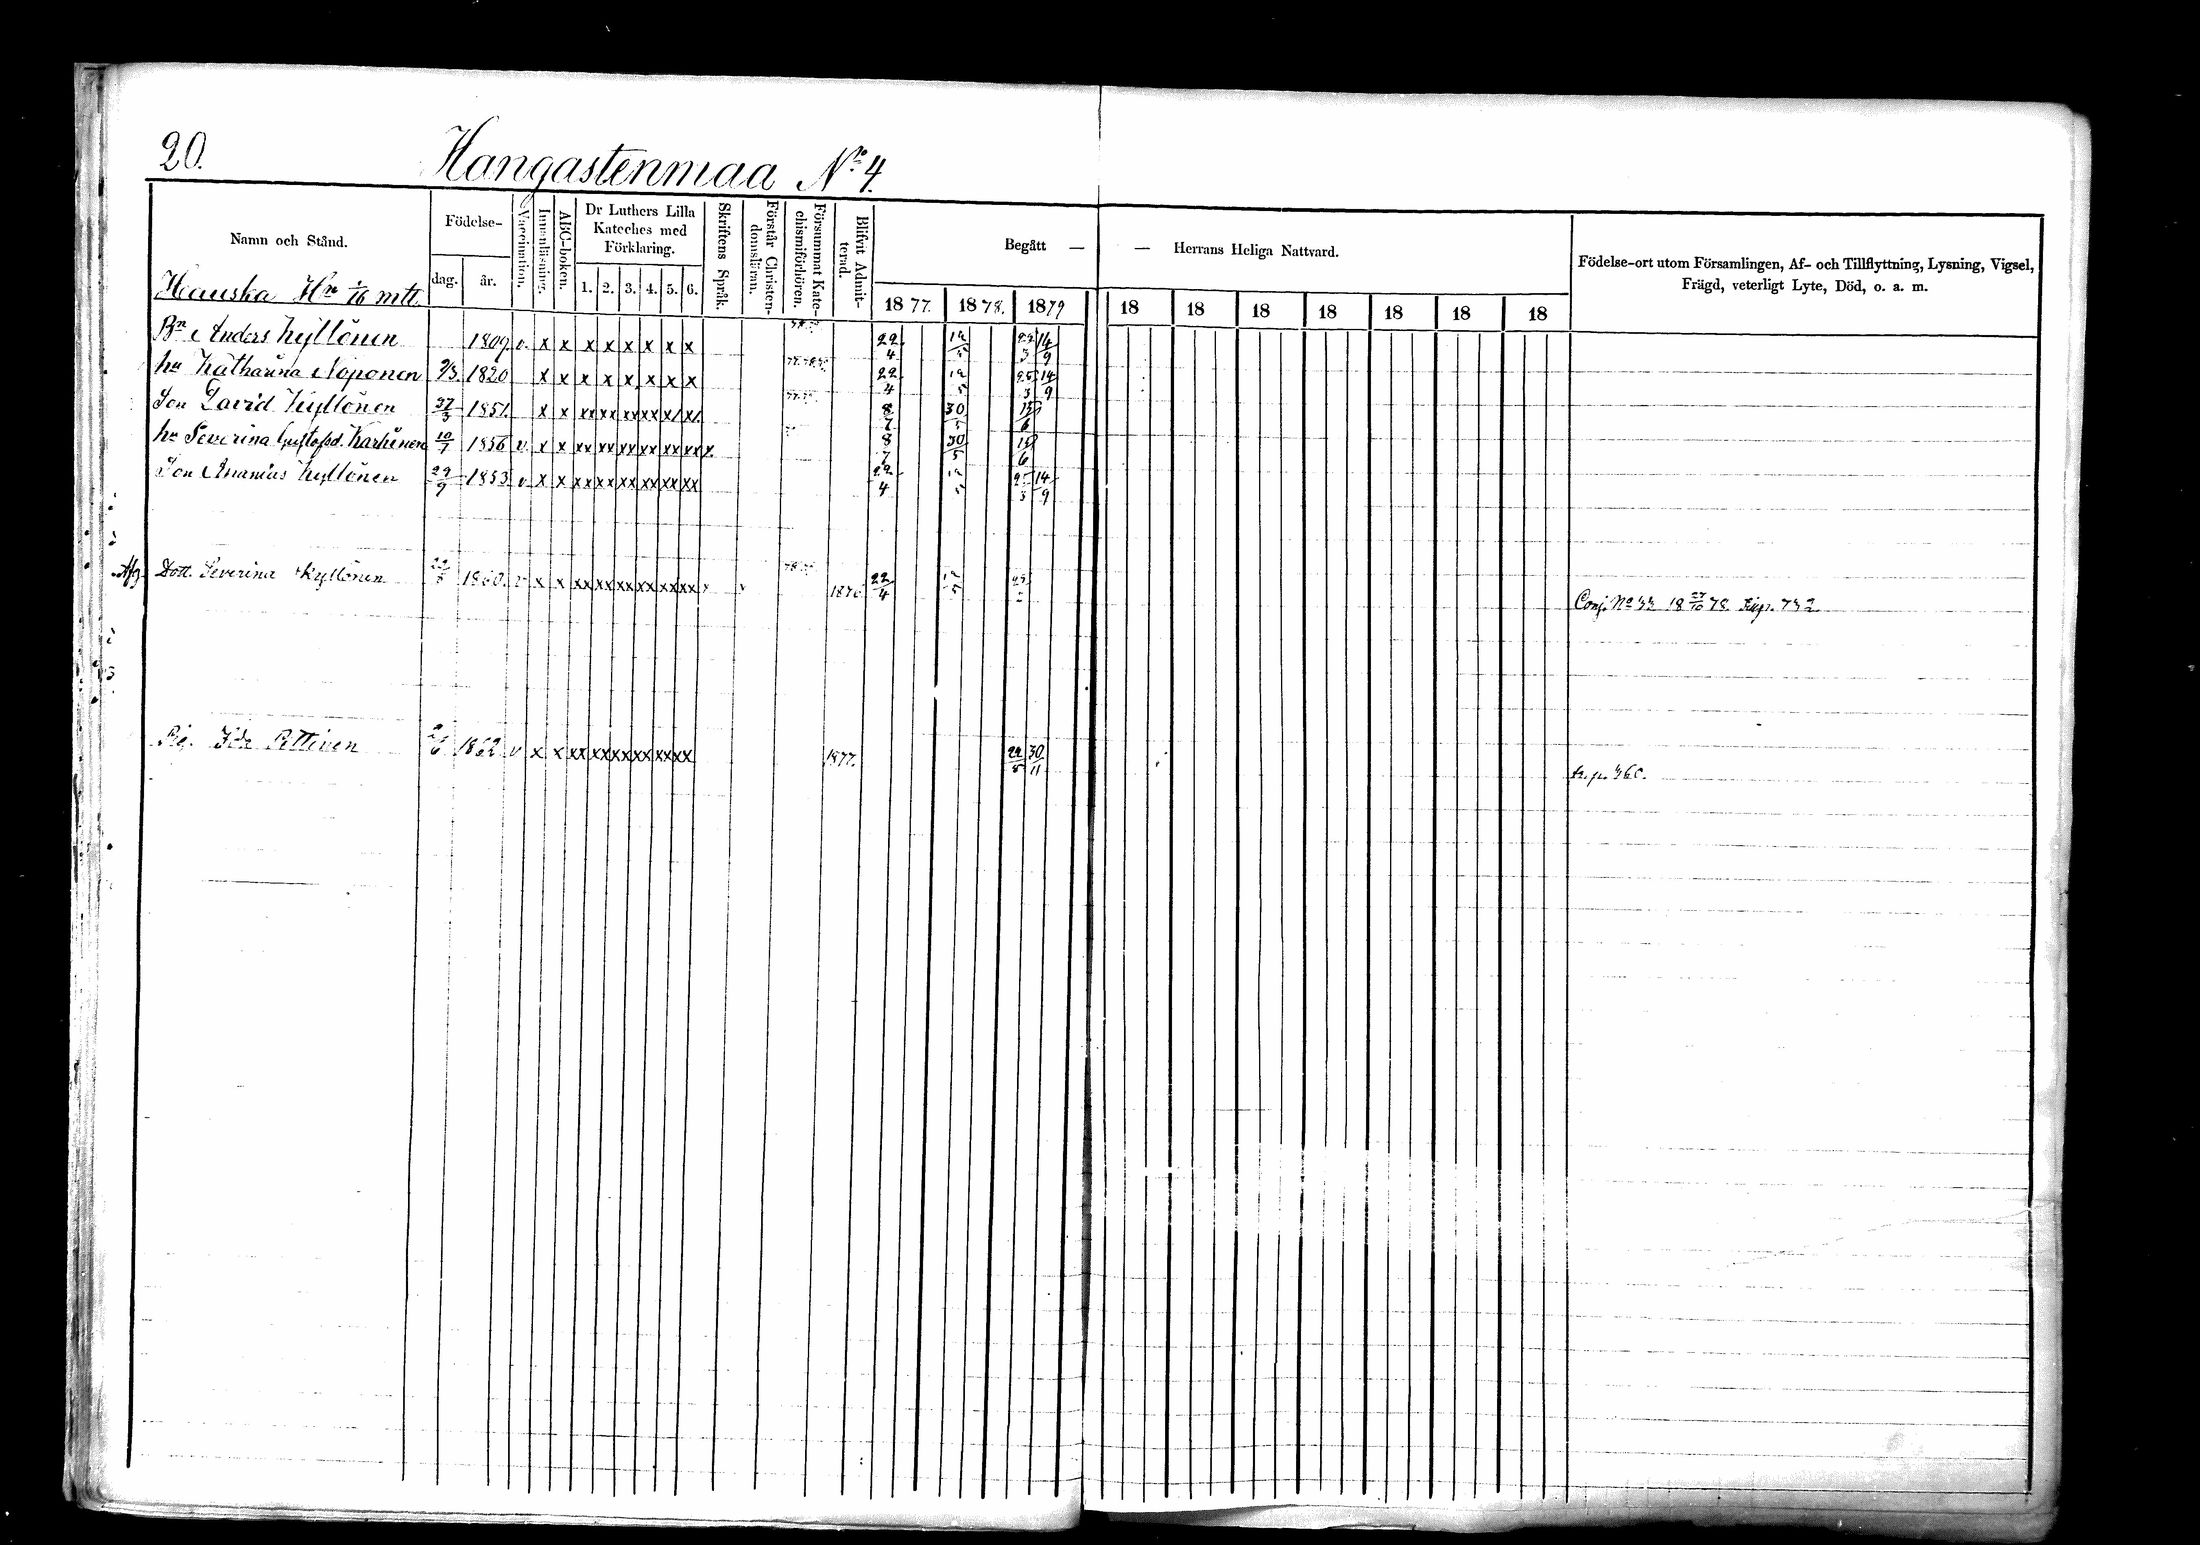 20. Hangastenmaa No 4.
Namn och Stånd. Födelse- dag. år. Vaccination. Innanläsning. ABC-boken. Dr Luthers Lilla Kateches med Förklaring. 1. 2. 3. 4. 5. 6. Skriftens Språk. Förstår Christendomsläran. Försummat Katechismiförhören. Blifvit Admitterad. Begått — — Herrans Heliga Nattvard. Födelse-ort utom Församlingen, Af- och Tillflyttning, Lysning, Vigsel, Frägd, veterligt Lyte, Död, o. a. m.
1877. 1878. 1879 18 18 18 18 18 18 18
Hauska Hn 1/16 mtl.
Bn Anders Kyllönen 1809 v. x x x x x x x x 22/4 12/5 14/9
hu Katharina Noponen 9/3. 1820 x x x x x x x x 22/4 12/5 25/3 14/9
Son David Kyllönen 1851. x x xx xx xx xx x/ x/. 8/7 30/5 15/6
hu Severina Gustafsd. Karhunen 10/7 1856 v. x x xx xx xx xx xx xx x. 8/7 30/5 15/6
Son Ananias Kyllönen 29/9 1853 v x x xx xx xx xx xx xx 22/4 12/5 25/3 14/9
Afg. Dott. Severina Kyllönen 1860. v x x xx xx xx xx xx xx 1876 22/4 12/5 Conj. No 1878
Pig. Ida Pettinen 1862 v x x xx xx xx xx xx xx 1877. 22/5 30/11 fr. p.